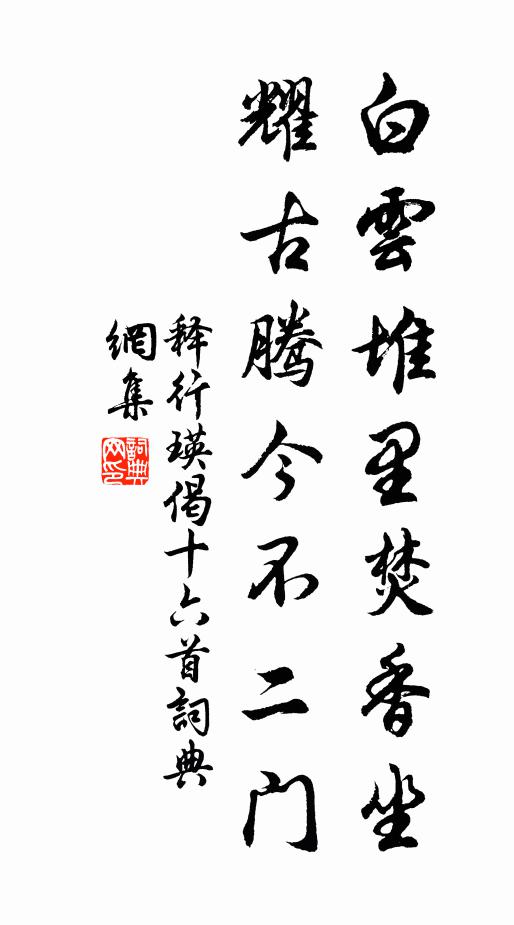 白雲堆里焚香坐
耀古騰今不二门
释行瑛偈十六首詞典
網集
詞典網印